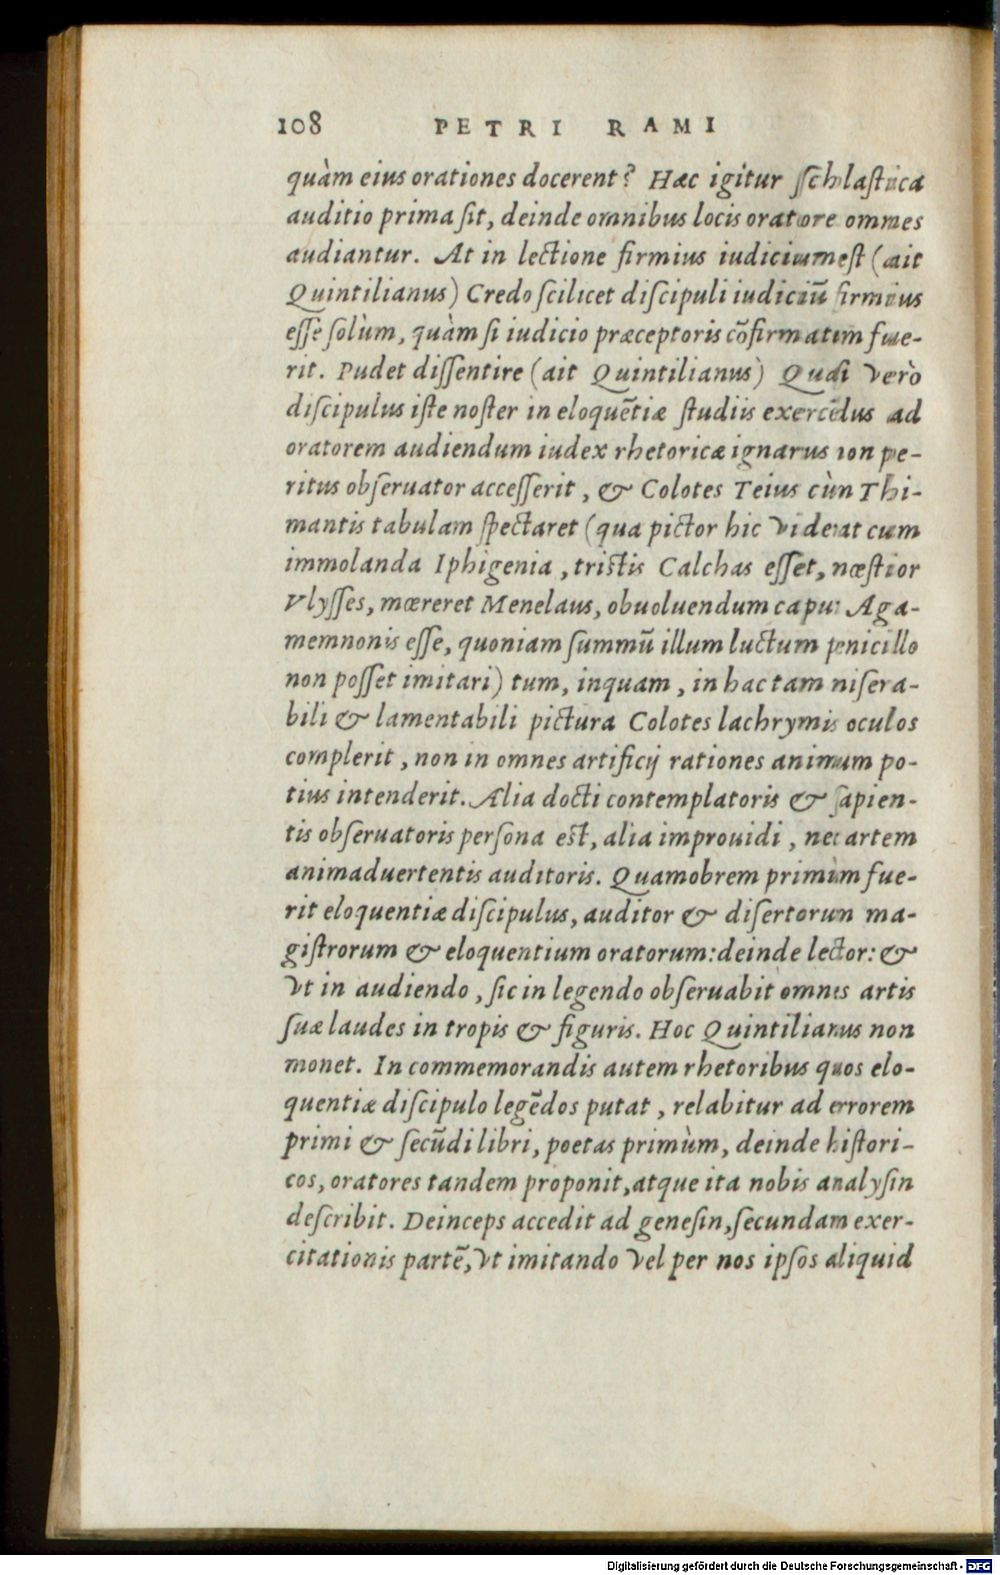 108 PETRI RAMI
quàm eius orationes docerent? Hæc igitur scholastica
auditio prima sit, deinde omnibus locis oratore omnes
audiantur. At in lectione firmius iudicium est (ait
Quintilianus) Credo scilicet discipuli iudiciũ firmius
esse solùm, quàm si iudicio præceptoris cõfirmatum fue-
rit. Pudet dissentire (ait Quintilianus) Quasi verò
discipulus iste noster in eloquẽtiæ studiis exercẽdus ad
oratorem audiendum iudex rhetoricæ ignarus non pe-
ritus obseruator accesserit, & Colotes Teius cùm Thi-
mantis tabulam spectaret (qua pictor hic viderat cum
immolanda Iphigenia, tristis Calchas esset, mœstior
Vlysses, mœreret Menelaus, obuoluendum caput Aga-
memnonis esse, quoniam summũ illum luctum penicillo
non posset imitari) tum, inquam, in hac tam misera-
bili & lamentabili pictura Colotes lachrymis oculos
complerit, non in omnes artificij rationes animum po-
tius intenderit. Alia docti contemplatoris & sapien-
tis obseruatoris persona est, alia improuidi, nec artem
animaduertentis auditoris. Quamobrem primùm fue-
rit eloquentiæ discipulus, auditor & disertorum ma-
gistrorum & eloquentium oratorum: deinde lector: &
vt in audiendo, sic in legendo obseruabit omnes artis
suæ laudes in tropis & figuris. Hoc Quintilianus non
monet. In commemorandis autem rhetoribus quos elo-
quentiæ discipulo legẽdos putat, relabitur ad errorem
primi & secũdi libri, poetas primùm, deinde histori-
cos, oratores tandem proponit, atque ita nobis analysin
describit. Deinceps accedit ad genesin, secundam exer-
citationis partẽ, vt imitando vel per nos ipsos aliquid
Digitalisierung gefördert durch die Deutsche Forschungsgemeinschaft - DFG